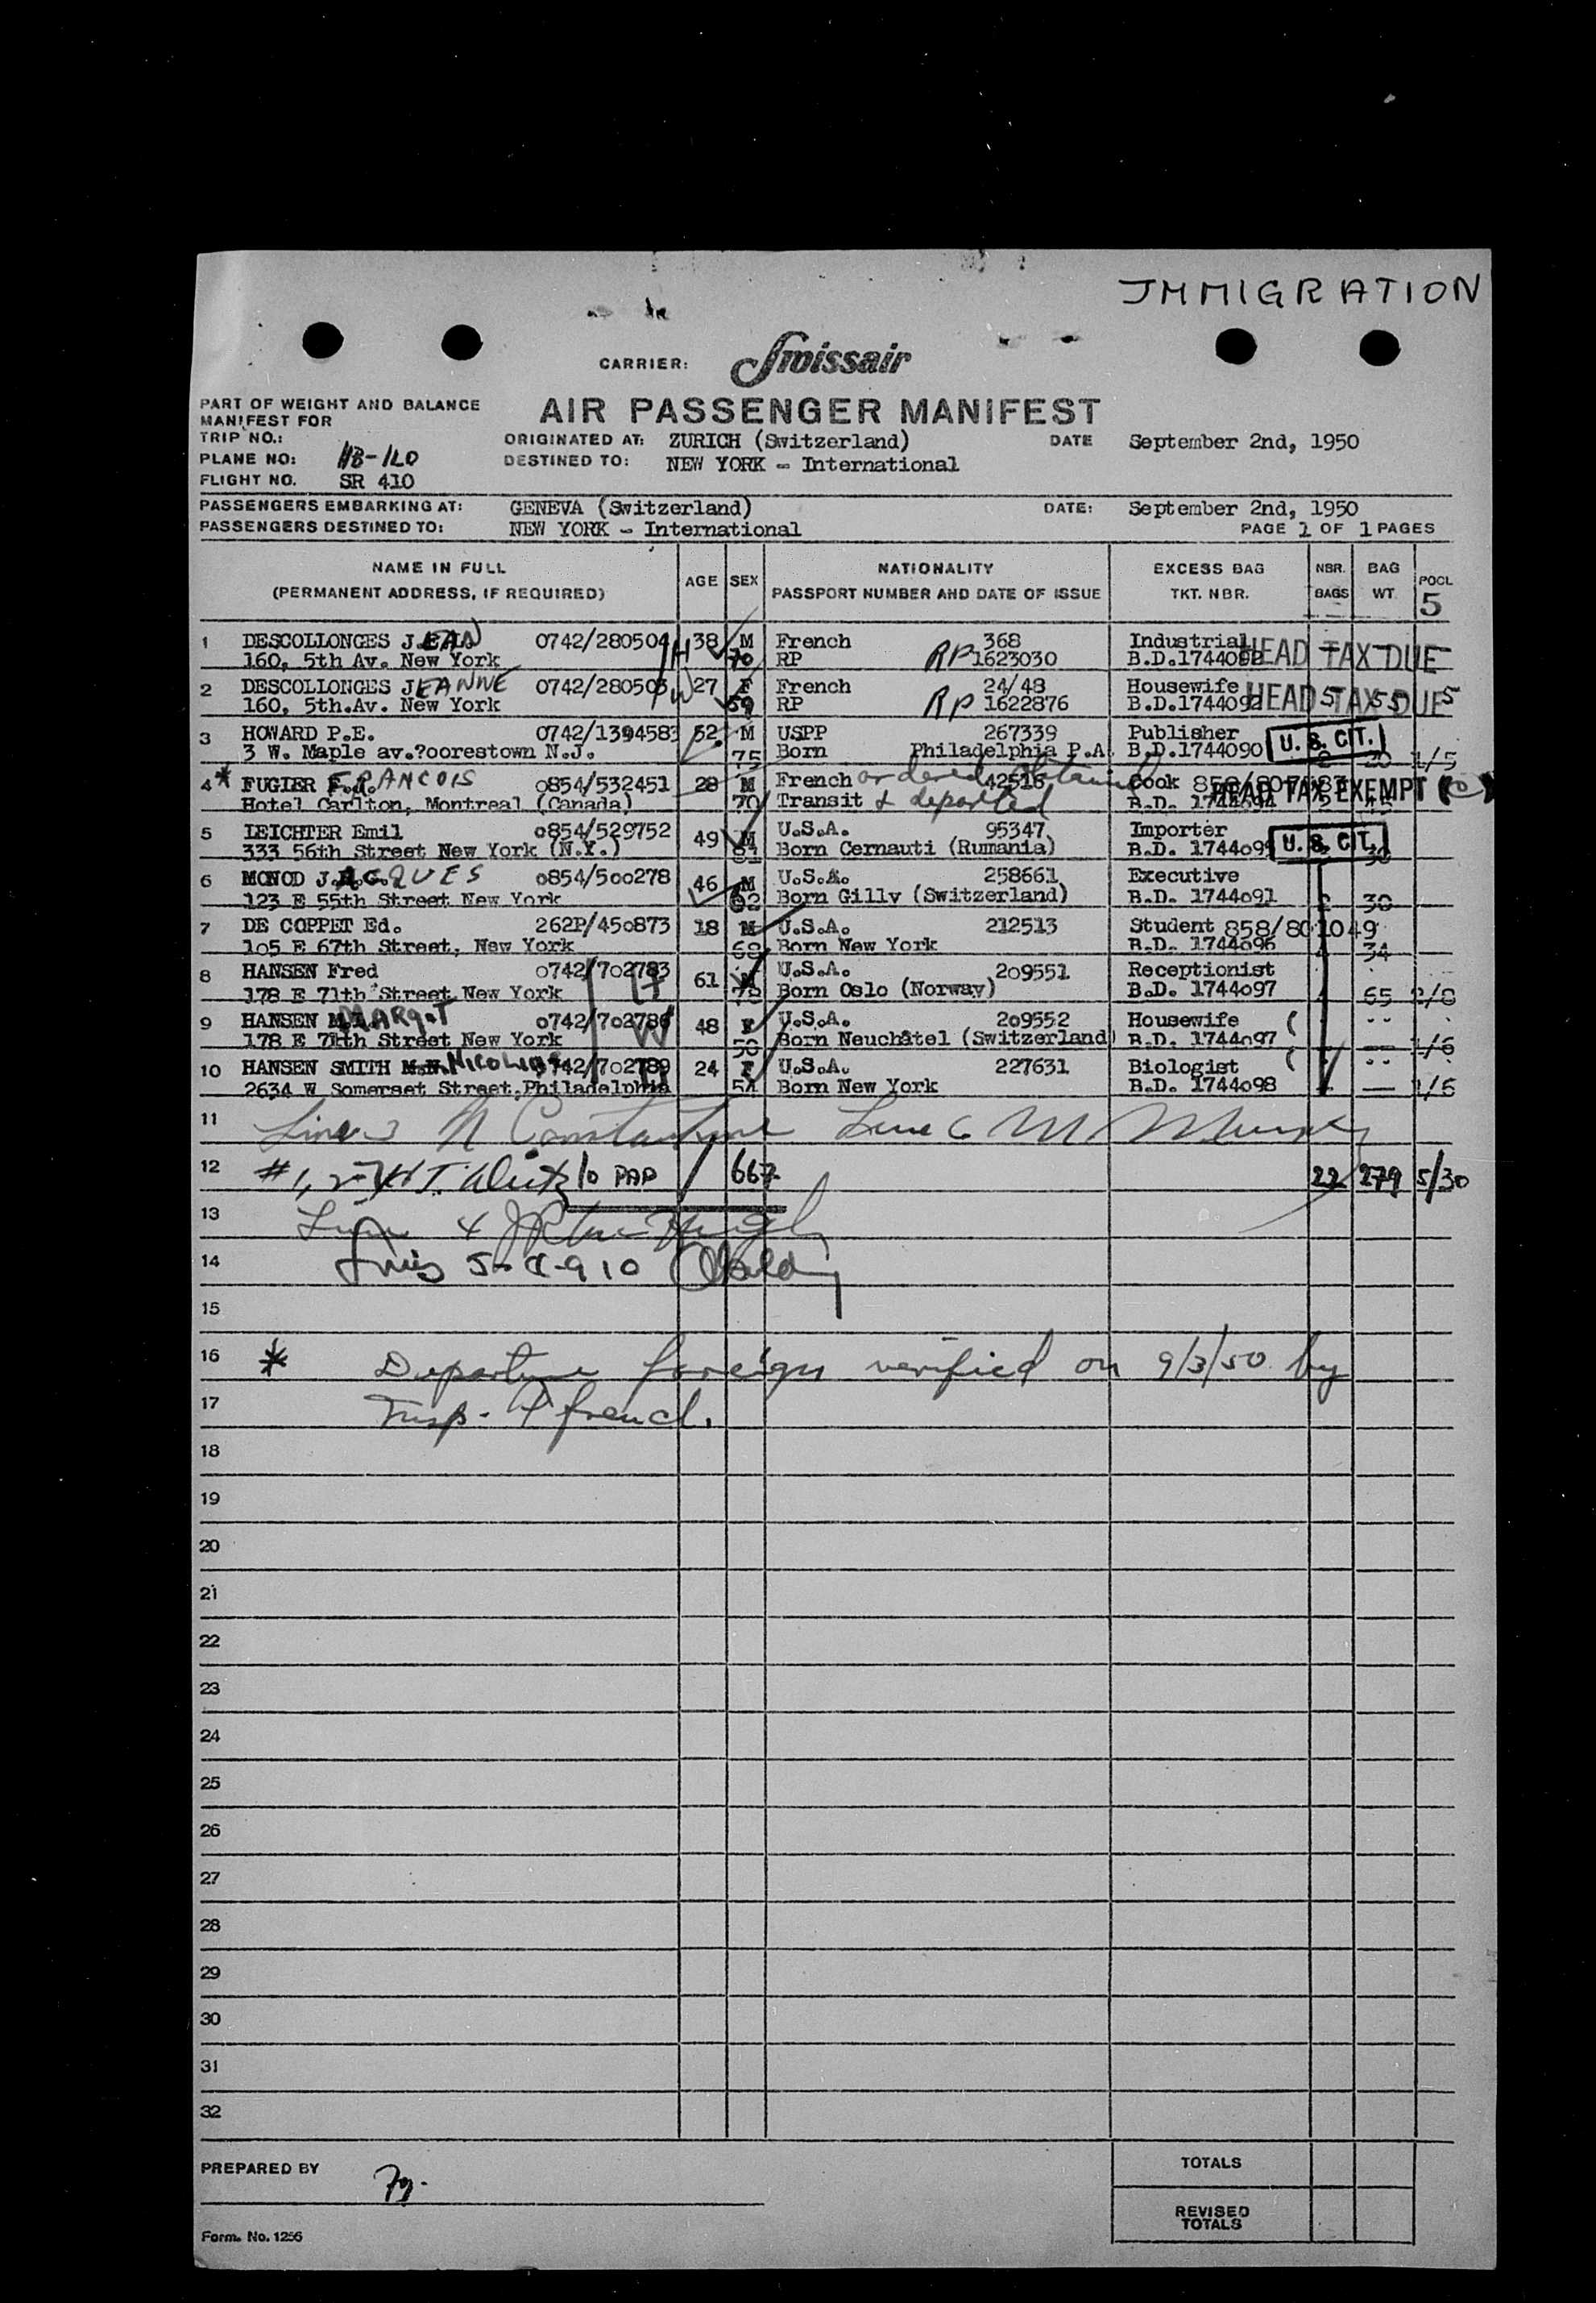 JMMIGRATION
CARRIER: Swissair
PART OF WEIGHT AND BALANCE
MANIFEST FOR
AIR PASSENGER MANIFEST
TRIP NO.:
ORIGINATED AT: ZURICH (Switzerland) DATE September 2nd, 1950
PLANE NO: HB-ILO
DESTINED TO: NEW YORK - International
FLIGHT NO. SR 410
PASSENGERS EMBARKING AT: GENEVA (Switzerland) DATE: September 2nd, 1950
PASSENGERS DESTINED TO: NEW YORK - International PAGE 1 OF 1 PAGES
NAME IN FULL
(PERMANENT ADDRESS, IF REQUIRED) AGE SEX
NATIONALITY
PASSPORT NUMBER AND DATE OF ISSUE
EXCESS BAG
TKT. NBR.
NBR.
BAGS
BAG
WT.
POCL
5
1 DESCOLLONGES JEAN 0742/280504 H 38 M French 368 Industrial HEAD TAX DUE
160, 5th Av. New York 70 RP RP 1623030 B.D.1744092
2 DESCOLLONGES JEANNE 0742/280505 W 27 F French 24/48 Housewife HEAD TAX DUE
160, 5th.Av. New York 59 RP RP 1622876 B.D.1744092 5 55 5
3 HOWARD P.E. 0742/1394583 52 M USPP 267339 Publisher U.S. CIT.
3 W. Maple av.?oorestown N.J. 75 Born Philadelphia P.A. B.D.1744090 1/5
4 * FUGIER FRANCOIS 0854/532451 28 M French ordered 42516 Cook
Hotel Carlton, Montreal (Canada) 70 Transit & departed B.D. 1744094 HEAD TAX EXEMPT (C)
5 LEICHTER Emil 0854/529752 49 M U.S.A. 95347 Importer
333 56th Street New York (N.Y.) 81 Born Cernauti (Rumania) B.D. 1744095 U.S. CIT.
6 MONOD JACQUES 0854/500278 46 M U.S.A. 258661 Executive
123 E 55th Street New York 62 Born Gilly (Switzerland) B.D. 1744091 2 30
7 DE COPPET Ed. 262P/450873 18 M U.S.A. 212513 Student 858/801049
105 E 67th Street, New York 68 Born New York B.D. 1744096 34
8 HANSEN Fred 0742/702783 H 61 M U.S.A. 209551 Receptionist
178 E 71th Street New York 78 Born Oslo (Norway) B.D. 1744097 65 2/8
9 HANSEN MARGOT 0742/702786 W 48 F U.S.A. 209552 Housewife (
178 E 71th Street New York 50 Born Neuchâtel (Switzerland) B.D. 1744097 1/6
10 HANSEN SMITH 0742/702789 24 F U.S.A. 227631 Biologist (
2634 W Somerset Street, Philadelphia 54 Born New York B.D. 1744098 1/6
11 Line 3 N Constantine Line 6 M Murphy
12 #1, 2 10 PAP / 667 22 279 5/30
13 Line 4
14 5-8-9 10
15
16 * Departure foreign verified on 9/3/50 by
17 Insp. French.
18
19
20
21
22
23
24
25
26
27
28
29
30
31
32
PREPARED BY
TOTALS
REVISED
TOTALS
Form. No. 1256